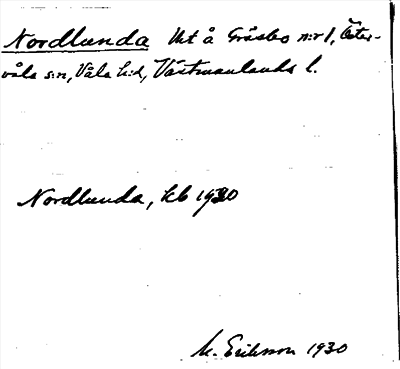 Nordlunda Ut å Gräsbo n:r 1, Öster-
våla s:n, Våla h:d, Västmanlands l.
Nordlunda, kb 1930
M. Eriksson 1930